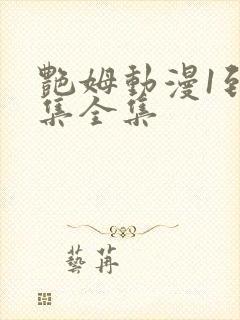 艷姆動漫1到
集全集
藝苒